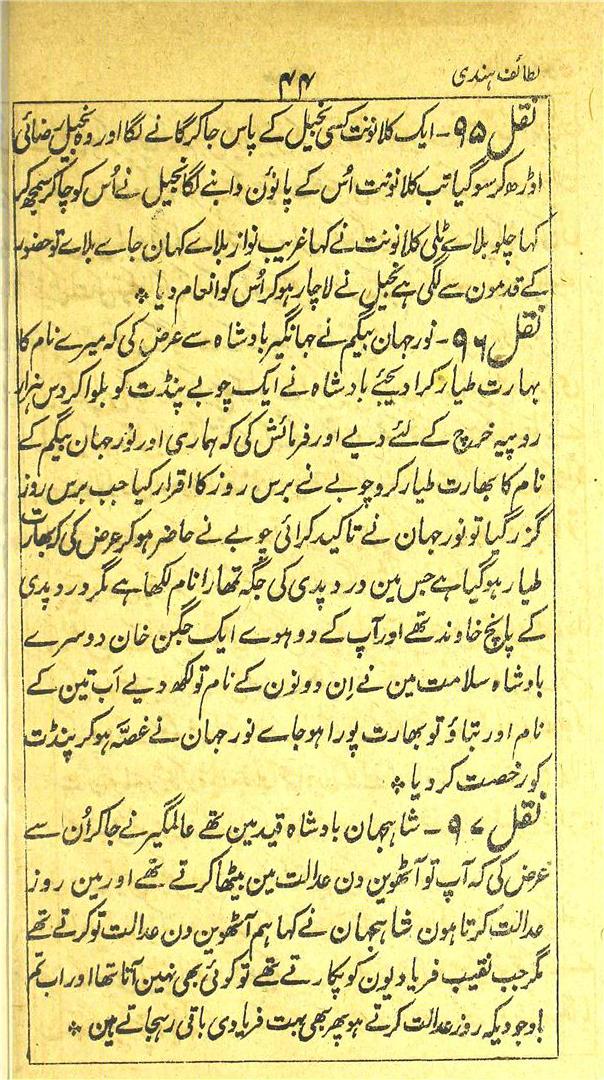 لطائف ہندی
۴۴
نقل ۹۵ - ایک کلانوت کسی بخیل کے پاس جا کر گانے لگا اور وہ بخیل رضائی
اوڑھ کر سو گیا تب کلانوت اُس کے پانوُن دابنے لگا بخیل نے اُس کو چاکر سمجھ کر
کہا چلو بلاے ٹلی کلانوت نے کہا غریب نواز بلاے کہان جاے بلاے تو حضور
کے قدمون سے لگی ہے بخیل نے لاچار ہو کر اُس کو انعام دیا *
نقل ۹۶ - نور جہان بیگم نے جہانگیر بادشاہ سے عرض کی کہ میرے نام کا
بہارت طیار کرا دیجئے بادشاہ نے ایک چوبے پنڈت کو بلوا کر دس ہزار
روپیہ خرچ کے لئے دیے اور فرمائش کی کہ ہماری اور نور جہان بیگم کے
نام کا بھارت طیار کرو چوبے نے برس روز کا اقرار کیا جب برس روز
گزر گیا تو نور جہان نے تاکید کرائی چوبے نے حاضر ہو کر عرض کی کہ بھارت
طیار ہو گیا ہے جس مین دروپدی کی جگہ تمھارا نام لکھا ہے مگر دروپدی
کے پانچ خاوند تھے اور آپ کے دو ہوے ایک جگن خان دوسرے
بادشاہ سلامت مین نے اِن دونون کے نام تو لکھ دیے اَب تین کے
نام اور بتاؤ تو بھارت پورا ہو جاے نور جہان نے غصّہ ہو کر پنڈت
کو رخصت کر دیا *
نقل ۹۷ - شاہجہان بادشاہ قید مین تھے عالمگیر نے جا کر اُن سے
عرض کی کہ آپ تو آٹھوین دن عدالت مین بیٹھا کرتے تھے اور مین روز
عدالت کرتا ہون شاہجہان نے کہا ہم آٹھوین دن عدالت تو کرتے تھے
مگر جب نقیب فریادیون کو پکارتے تھے تو کوئی بھی نہین آتا تھا اور اب تم
باوجودیکہ روز عدالت کرتے ہو پھر بھی بہت فریادی باقی رہجاتے ہین *